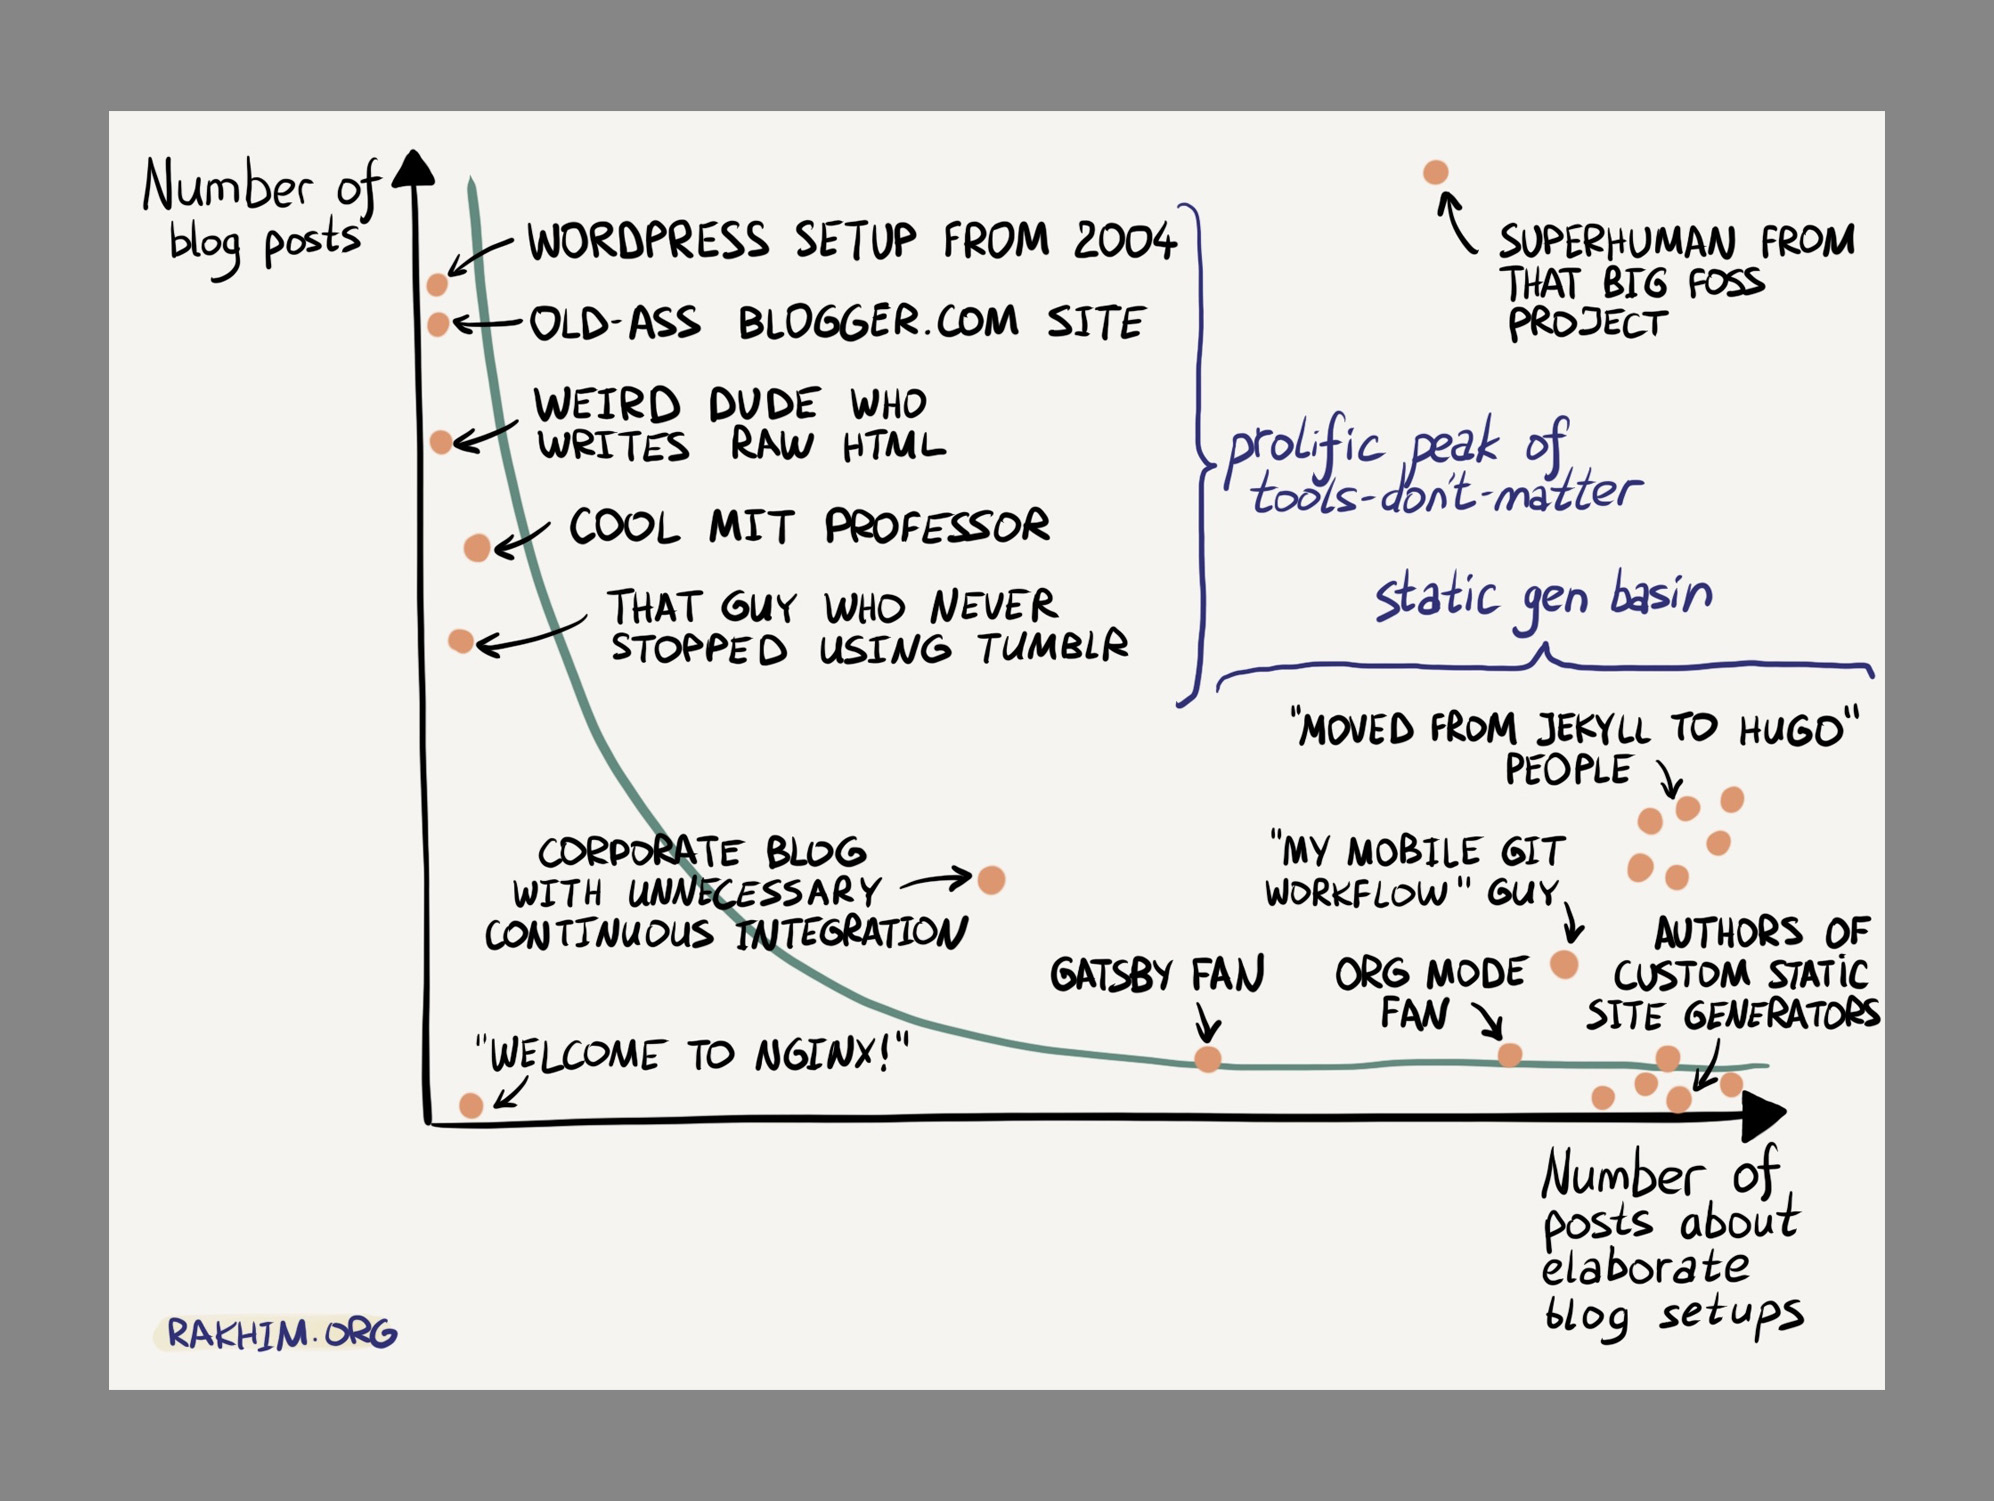 Number of
blog posts
WORDPRESS SETUP FROM 2004
OLD-ASS BLOGGER.COM SITE
WEIRD DUDE WHO
WRITES RAW HTML
COOL MIT PROFESSOR
THAT GUY WHO NEVER
STOPPED USING TUMBLR
SUPERHUMAN FROM
THAT BIG FOSS
PROJECT
prolific peak of
tools-don't-matter
static gen basin
"MOVED FROM JEKYLL TO HUGO"
PEOPLE
CORPORATE BLOG
WITH UNNECESSARY
CONTINUOUS INTEGRATION
"MY MOBILE GIT
WORKFLOW" GUY
GATSBY FAN
ORG MODE
FAN
AUTHORS OF
CUSTOM STATIC
SITE GENERATORS
"WELCOME TO NGINX!"
Number of
posts about
elaborate
blog setups
RAKHIM.ORG